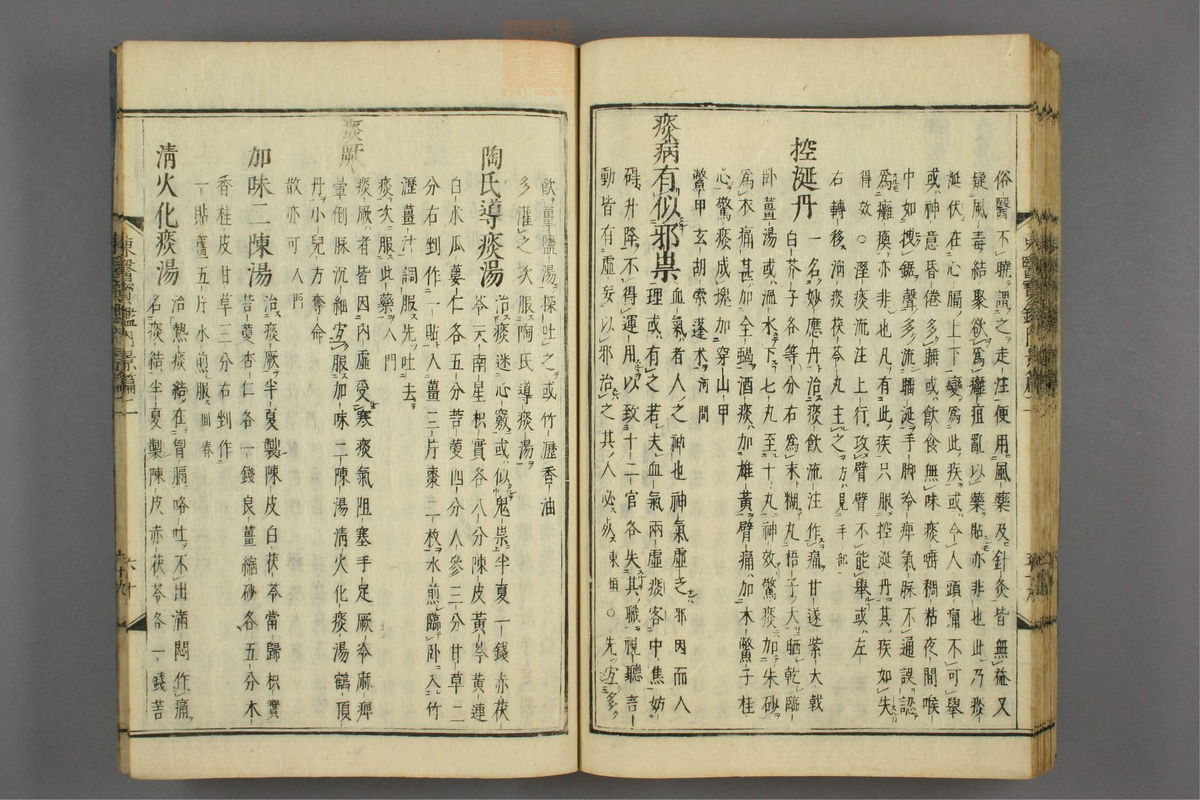 俗醫不曉謂之走注便用風藥及針灸皆無益又
疑風毒結聚欲爲癰疽亂以藥貼亦非也此乃痰
涎伏在心膈上下變爲此疾或令人頭痛不可擧
或神意昏倦多睡或飮食無味痰唾稠粘夜間喉
中如拽鋸聲多流睡涎手脚冷痺氣脉不通誤認
爲癱瘓亦非也凡有此疾只服控涎丹其疾如失
得効○痰流注上行攻臂臂不能擧或左
右轉移消痰茯苓丸主之方見手部
控涎丹
一名妙應丹治痰飮流注作痛甘遂紫大戟
白芥子各等分右爲末糊丸梧子大晒乾臨
卧薑湯或溫水下七丸至十丸神效驚痰加朱砂
爲衣痛甚加全蝎酒痰加雄黃臂痛加木鱉子桂
心驚痰成塊加穿山甲
鱉甲玄胡索蓬朮河間
痰病有似邪祟
血氣者人之神也神氣虛乏邪因而入
理或有之若夫血氣兩虛痰客中焦妨
碍升降不得運用以致十二官各失其職視聽言
動皆有虛妄以邪治之其人必死東垣○先宜多
飮薑鹽湯探吐之或竹瀝香油
多灌之次服陶氏導痰湯
陶氏導痰湯
治痰迷心竅或似鬼祟半夏一錢赤茯
苓天南星枳實各八分陳皮黃芩黃連
白朮瓜蔞仁各五分苦蔞四分人參三分甘草二
分右剉作一貼入薑三片棗二枚水煎臨卧入竹
瀝薑汁調服先吐去
痰次服此藥入門
痰厥
痰厥者皆因內虛受寒痰氣阻塞手足厥冷麻痺
暈倒脉沉細宜服加味二陳湯淸火化痰湯鶴頂
丹小兒方奪命
散亦可入門
加味二陳湯
治痰厥半夏製陳皮白茯苓當歸枳實
桔黃杏仁各一錢良薑縮砂各五分木
香桂皮甘草三分右剉作
一貼薑五片水煎服回春
淸火化痰湯
治熱痰結在胷膈咯吐不出滿悶作痛
名痰結半夏製陳皮赤茯苓各一錢吉
東醫寶鑑內景篇二
六十九